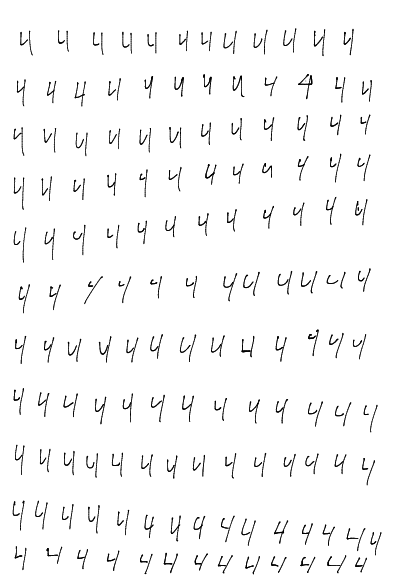 4 4 4 4 4 4 4 4 4 4 4 4
4 4 4 4 4 4 4 4 4 4 4 4
4 4 4 4 4 4 4 4 4 4 4 4
4 4 4 4 4 4 4 4 4 4 4 4
4 4 4 4 4 4 4 4 4 4 4 4
4 4 4 4 4 4 4 4 4 4 4 4
4 4 4 4 4 4 4 4 4 4 4 4 4
4 4 4 4 4 4 4 4 4 4 4 4 4
4 4 4 4 4 4 4 4 4 4 4 4 4 4
4 4 4 4 4 4 4 4 4 4 4 4 4 4 4
4 4 4 4 4 4 4 4 4 4 4 4 4